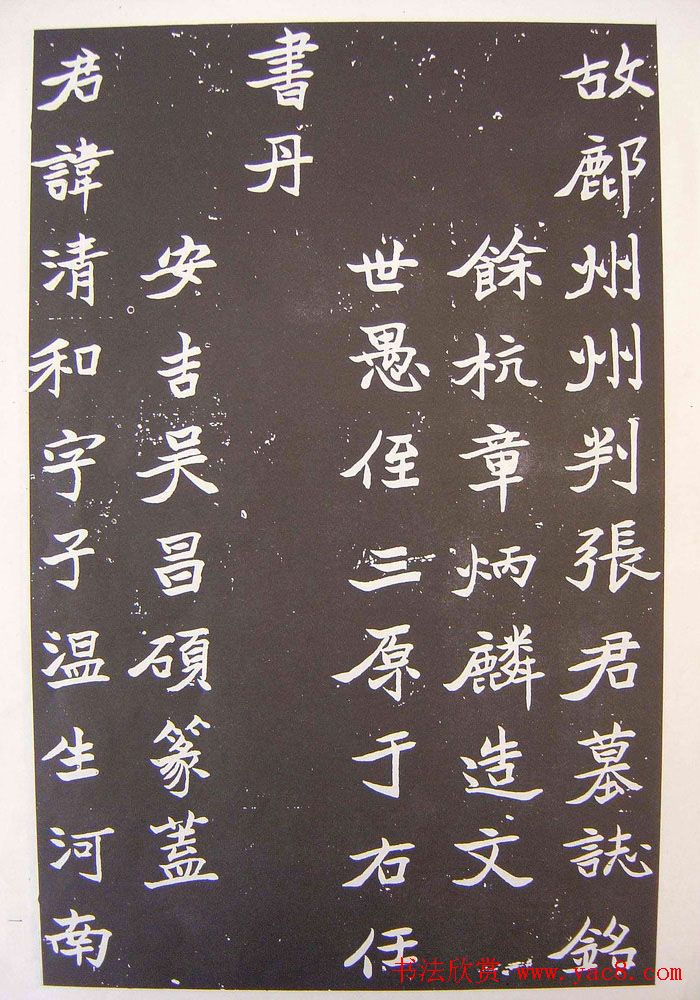 故鄜州州判張君墓誌銘
餘杭章炳麟造文
世愚侄三原于右任
書丹
安吉吳昌碩篆蓋
君諱清和字子温生河南
书法欣赏 www.yac8.com